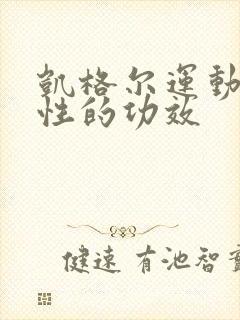 凯格尔運動
性的功效
健速 有池智